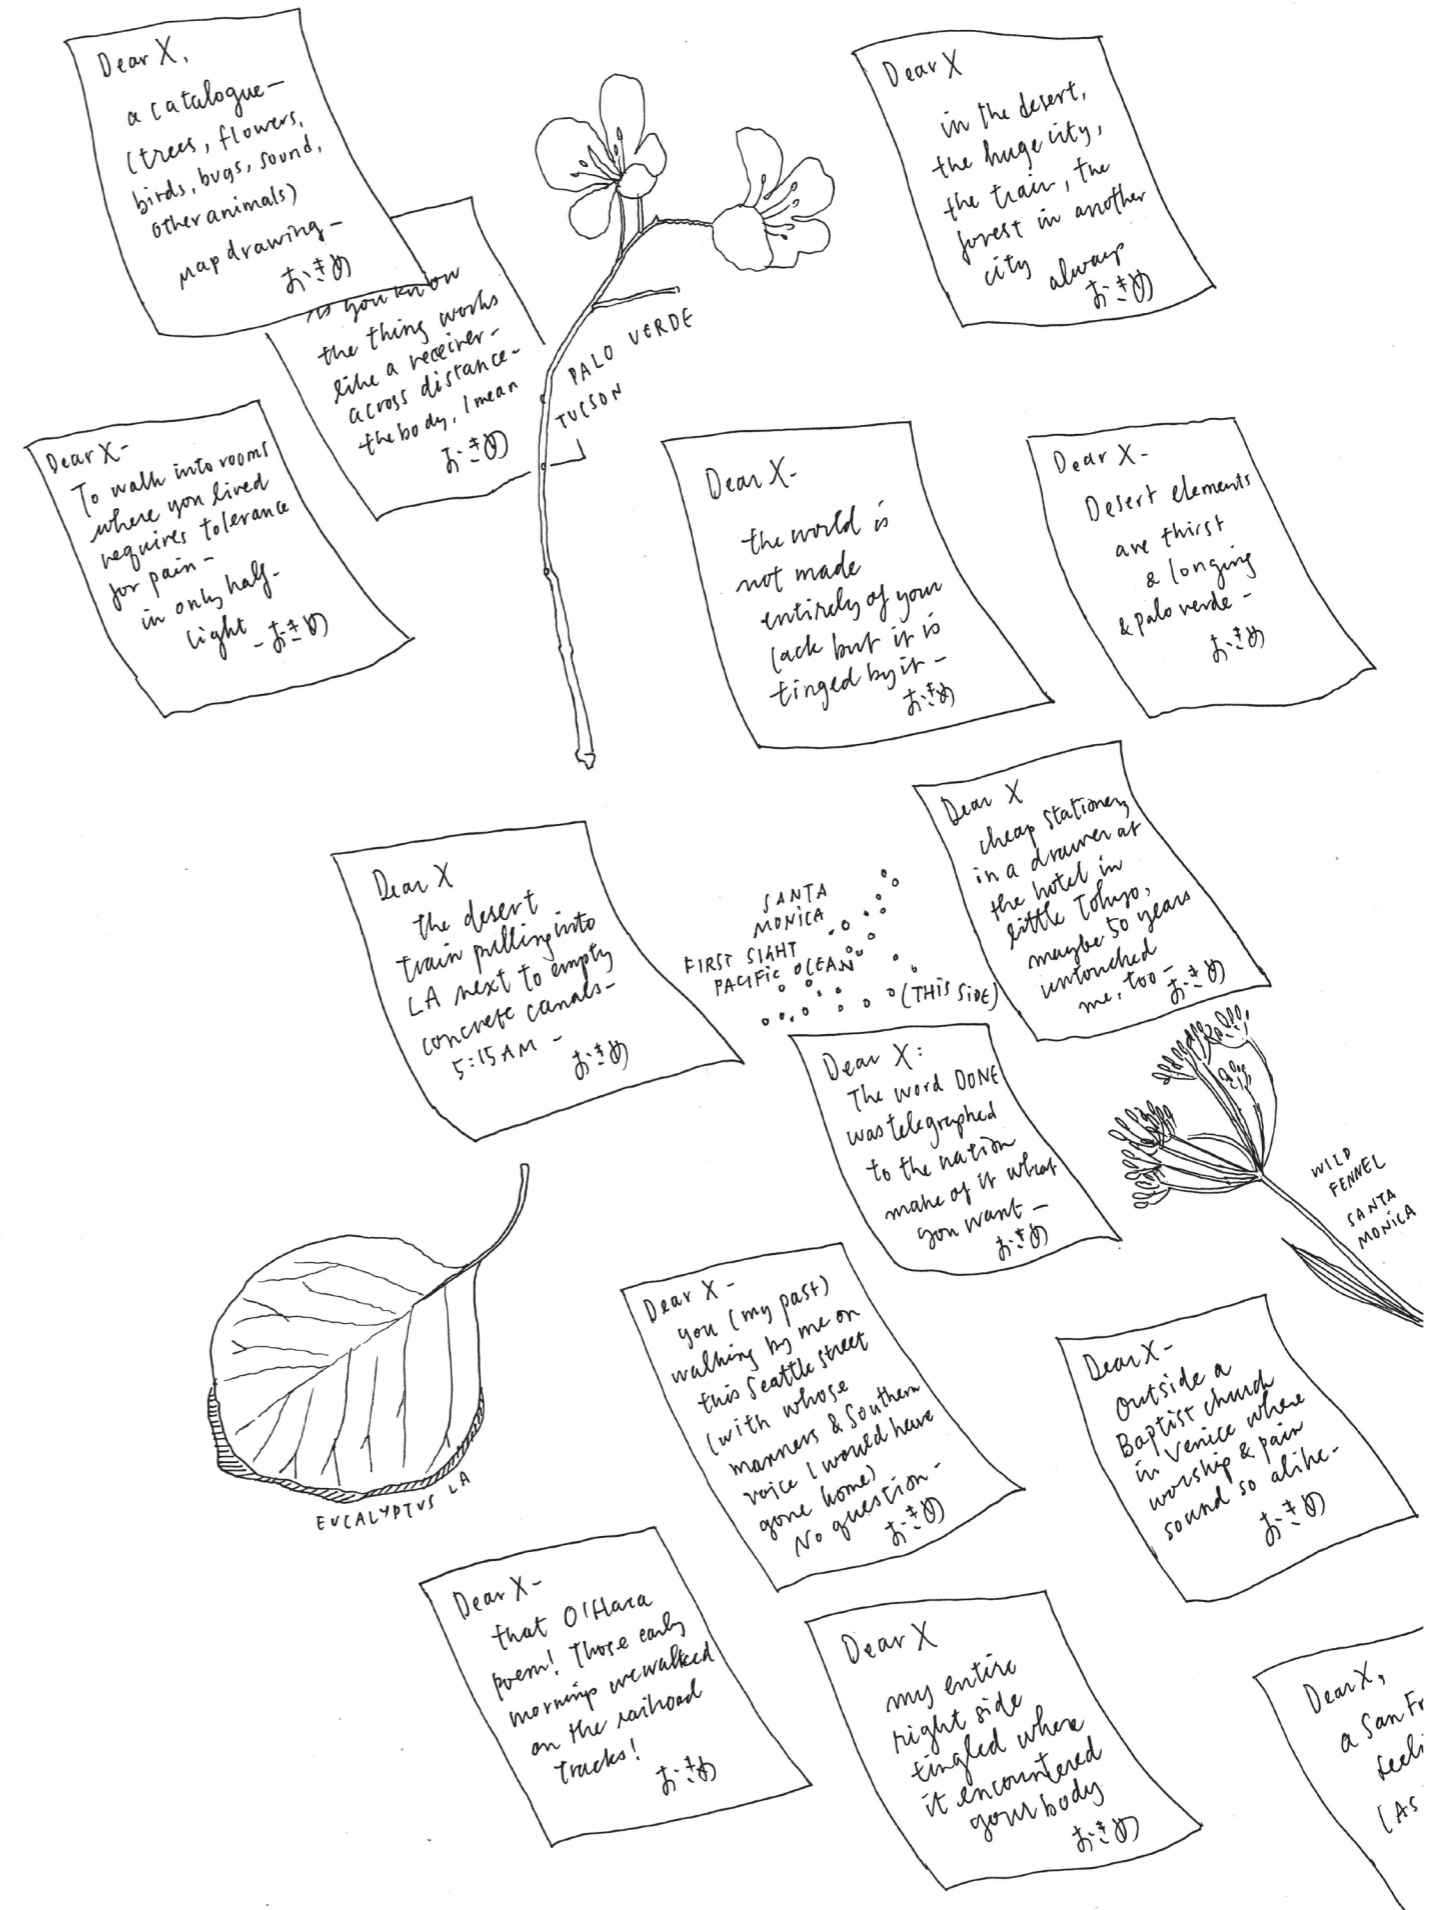 Dear X,
a catalogue—
(trees, flowers,
birds, bugs, sound,
other animals)
map drawing—
おきめ
As you know
the thing works
like a receiver—
across distance—
the body, I mean
おきめ
PALO VERDE
TUCSON
Dear X
in the desert,
the huge city,
the train, the
forest in another
city always
おきめ
Dear X-
To walk into rooms
where you lived
requires tolerance
for pain—
in only half-
light
- おきめ
Dear X-
the world is
not made
entirely of your
lack but it is
tinged by it—
おきめ
Dear X-
Desert elements
are thirst
& longing
& palo verde—
おきめ
Dear X
the desert
train pulling into
LA next to empty
concrete canals—
5:15 AM —
おきめ
SANTA
MONICA
FIRST SIGHT
PACIFIC OCEAN
(THIS SIDE)
Dear X
cheap stationery
in a drawer at
the hotel in
little Tokyo,
maybe 50 years
untouched
me, too—
おきめ
Dear X:
The word DONE
was telegraphed
to the nation
make of it what
you want—
おきめ
WILD
FENNEL
SANTA
MONICA
EUCALYPTUS LA
Dear X-
you (my past)
walking by me on
this Seattle street
(with whose
manners & Southern
voice I would have
gone home)
No question-
おきめ
Dear X-
Outside a
Baptist church
in Venice where
worship & pain
sound so alike-
おきめ
Dear X-
that O'Hara
poem! Those early
mornings we walked
on the railroad
tracks!
おきめ
Dear X
my entire
right side
tingled where
it encountered
your body
おきめ
Dear X,
a San Fr
feeli
(As